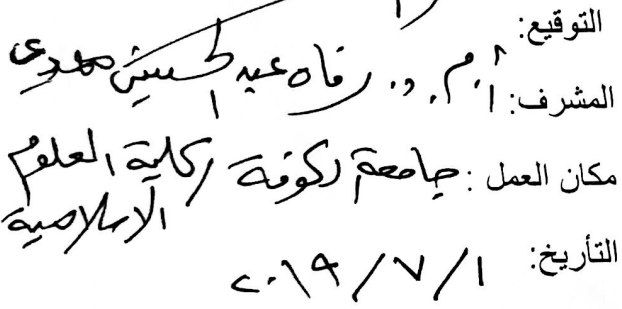 التوقيع:
المشرف: أ.م.د. رفاه عبد الحسين مهدي
مكان العمل: جامعة الكوفة / كلية العلوم
الاسلامية
التأريخ: ١ / ٧ / ٢٠١٩